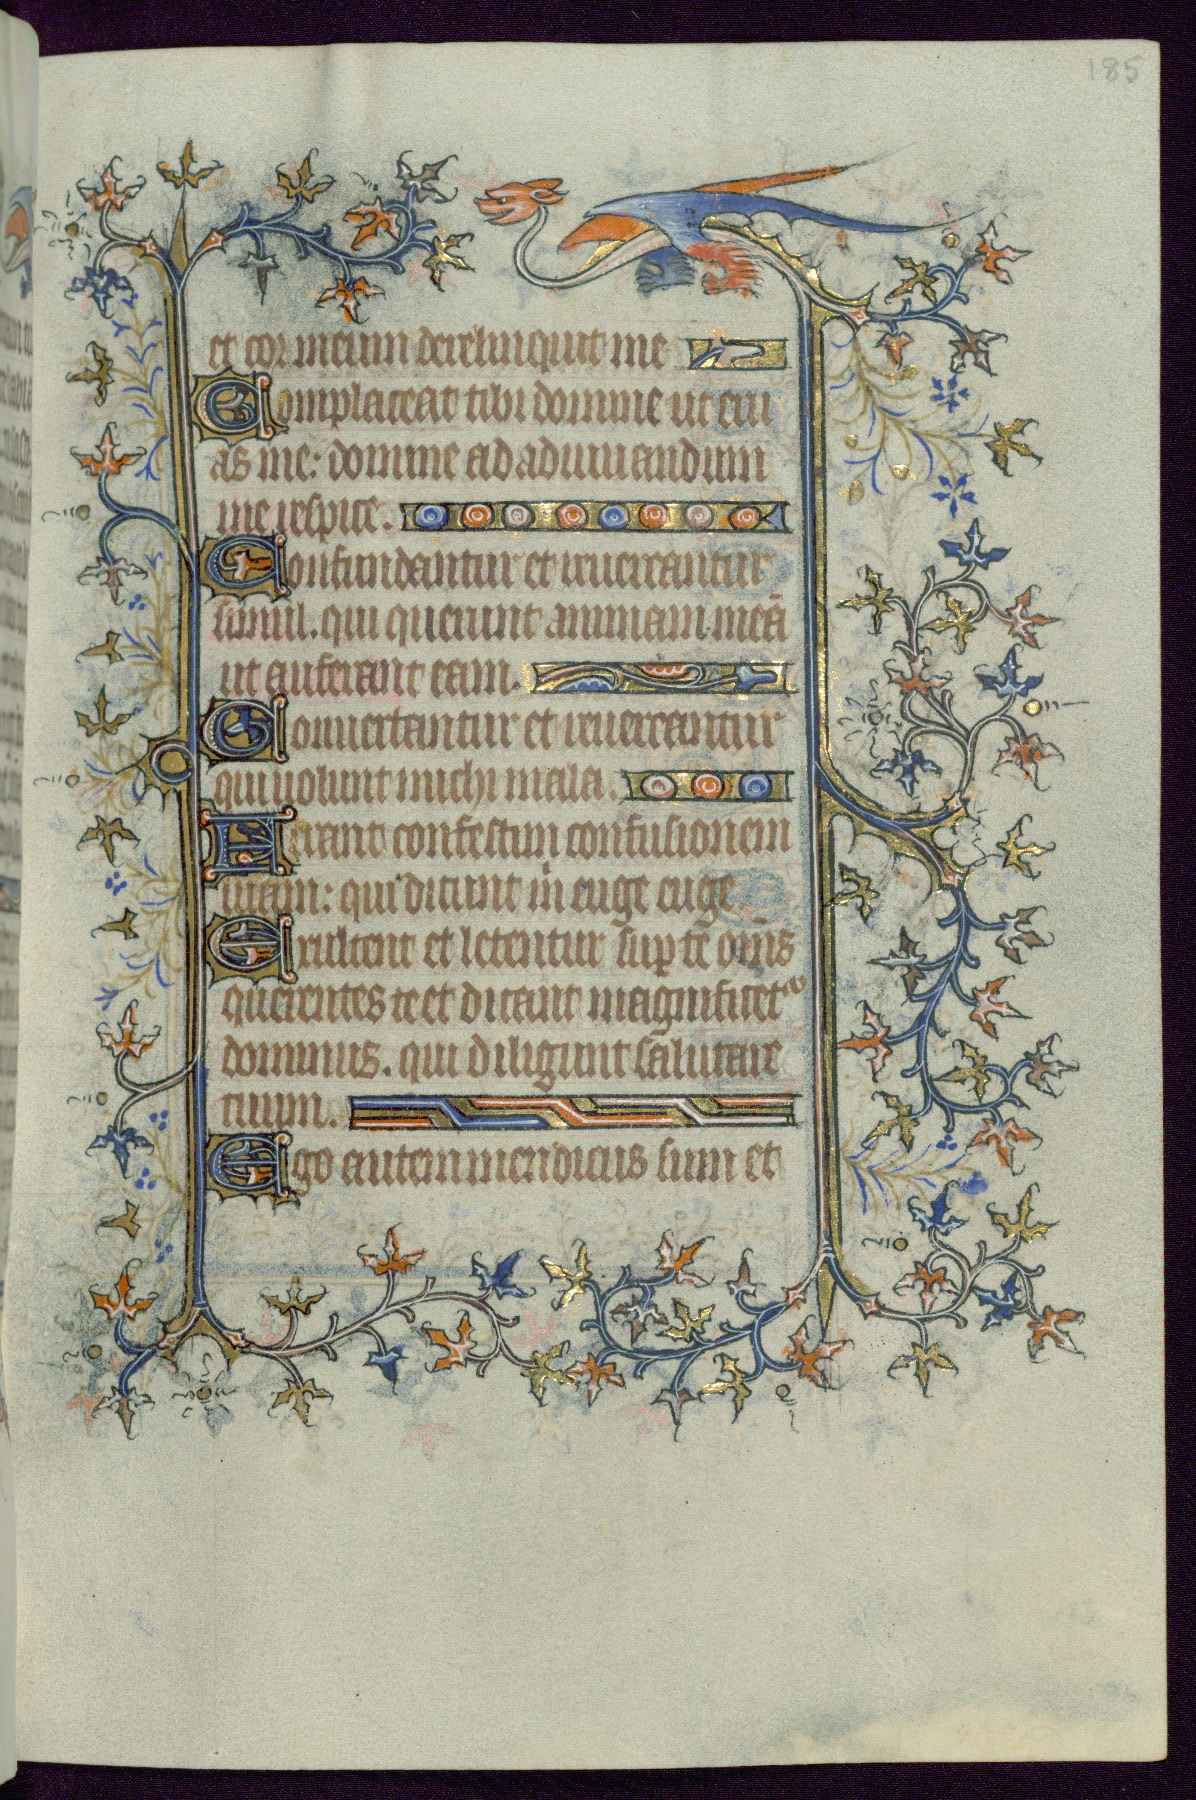 185
et cor meum dereliquit me
Complaceat tibi domine ut eru
as me: domine ad adiuuandum
me respice.
Confundantur et reuereantur
simul. qui querunt animam meā
ut auferant eam.
Conuertantur et reuereantur
qui uolunt michi mala.
Ferant confestim confusionem
suam: qui dicunt m̄ euge euge
Exultent et letentur sup te om̄s
querentes te et dicant magnificet
dominus. qui diligunt salutare
tuum.
Ego autem mendicus sum et